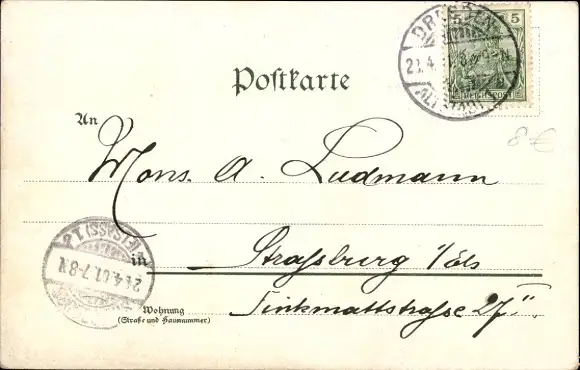 DRESDEN
5 5
REICHSPOST
ALTSTADT
Postkarte
8 €
An
Mons. A. Ludmann
(ELSASS) 1
in
Strassburg i/Els
24.4.01.7-8N.
Finkmattstrasse 27
Wohnung
(Straße und Hausnummer)